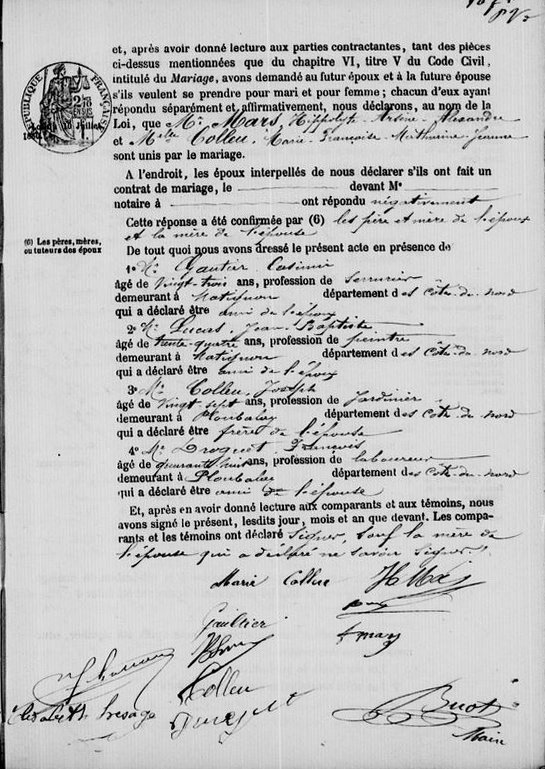 et, après avoir donné lecture aux parties contractantes, tant des pièces
ci-dessus mentionnées que du chapitre VI, titre V du Code Civil,
intitulé du Mariage, avons demandé au futur époux et à la future épouse
s'ils veulent se prendre pour mari et pour femme ; chacun d'eux ayant
répondu séparément et affirmativement, nous déclarons, au nom de la
Loi, que Mr Mars, Hippolyte Arsène Alexandre
et Melle Colleu, Marie Françoise Mathurine Jeanne
sont unis par le mariage.
RÉPUBLIQUE FRANÇAISE
A l'endroit, les époux interpellés de nous déclarer s'ils ont fait un
contrat de mariage, le devant Me
notaire à ont répondu négativement
Cette réponse a été confirmée par (6) les père et mère de l'époux
et la mère de l'épouse
(6) Les pères, mères,
ou tuteurs des époux
De tout quoi nous avons dressé le présent acte en présence de
1° Mr Gautier Casimir
âgé de vingt-trois ans, profession de serrurier
demeurant à Matignon département des Côte-du-nord
qui a déclaré être ami de l'époux
2° Mr Lucas, Jean-Baptiste
âgé de trente-quatre ans, profession de peintre
demeurant à Matignon département des Côte-du-nord
qui a déclaré être ami de l'époux
3° Mr Colleu, Joseph
âgé de vingt-sept ans, profession de Jardinier
demeurant à Ploubalay département des Côte-du-nord
qui a déclaré être frère de l'épouse
4° Mr Droguet, François
âgé de quarante-huit ans, profession de laboureur
demeurant à Ploubalay département des Côte-du-nord
qui a déclaré être ami de l'épouse
Et, après en avoir donné lecture aux comparants et aux témoins, nous
avons signé le présent, lesdits jour, mois et an que devant. Les compa-
rants et les témoins ont déclaré signer, sauf la mère de
l'épouse qui a déclaré ne savoir signer
Marie Colleu
Gaultier
Colleu
Elisabeth Lesage
Buot
Main